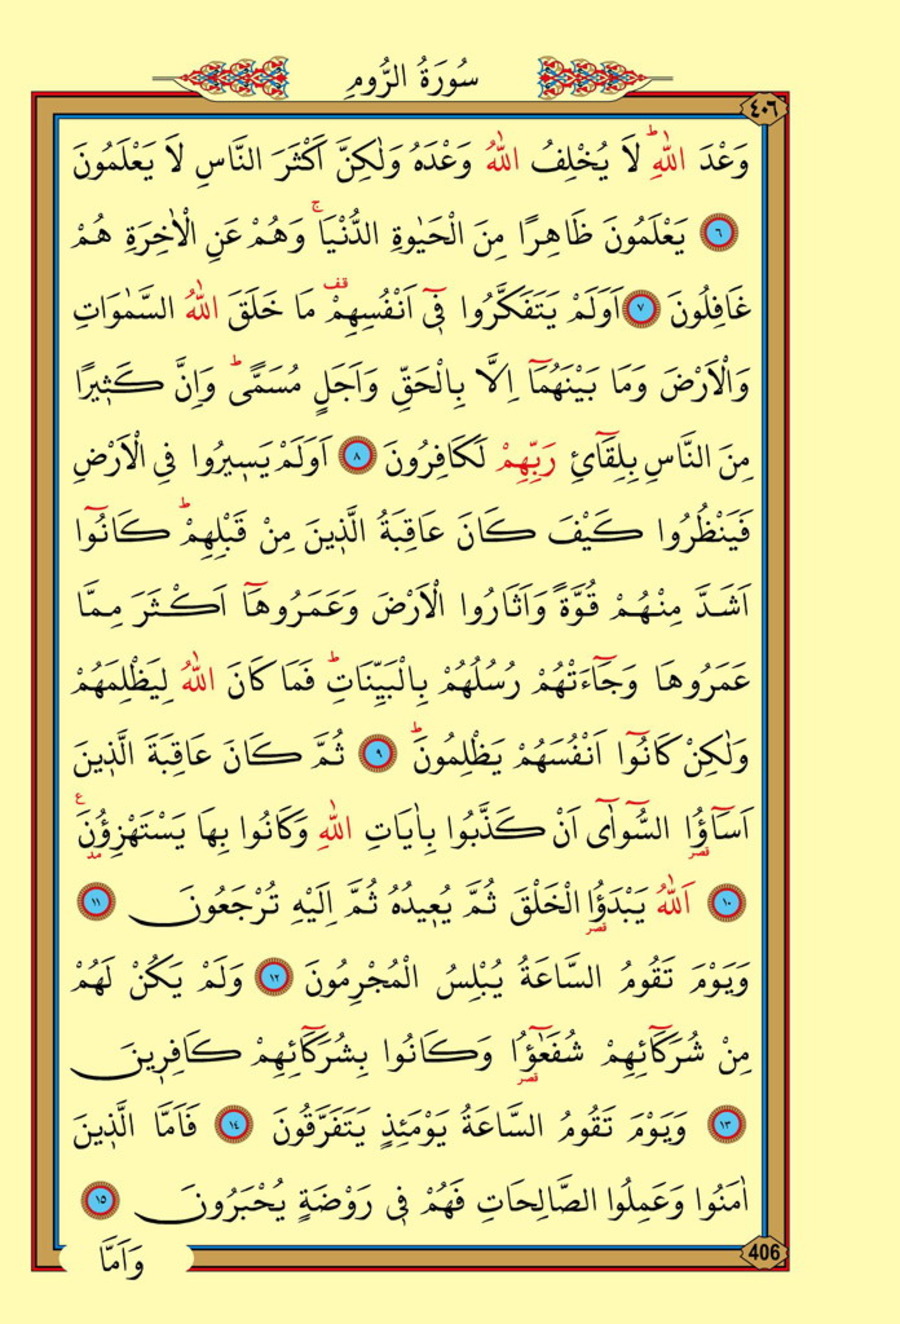 سُورَةُ الرُّومِ
٤٠٦
وَعْدَ اللّٰهِۜ لَا يُخْلِفُ اللّٰهُ وَعْدَهُ وَلٰكِنَّ اَكْثَرَ النَّاسِ لَا يَعْلَمُونَ
٦ يَعْلَمُونَ ظَاهِرًا مِنَ الْحَيٰوةِ الدُّنْيَاۚ وَهُمْ عَنِ الْاٰخِرَةِ هُمْ
غَافِلُونَ ٧ اَوَلَمْ يَتَفَكَّرُوا فٓي اَنْفُسِهِمْ۠ مَا خَلَقَ اللّٰهُ السَّمٰوَاتِ
وَالْاَرْضَ وَمَا بَيْنَهُمَٓا اِلَّا بِالْحَقِّ وَاَجَلٍ مُسَمًّىۜ وَاِنَّ كَثٖيرًا
مِنَ النَّاسِ بِلِقَٓائِ رَبِّهِمْ لَكَافِرُونَ ٨ اَوَلَمْ يَسٖيرُوا فِي الْاَرْضِ
فَيَنْظُرُوا كَيْفَ كَانَ عَاقِبَةُ الَّذٖينَ مِنْ قَبْلِهِمْۜ كَانُٓوا
اَشَدَّ مِنْهُمْ قُوَّةً وَاَثَارُوا الْاَرْضَ وَعَمَرُوهَٓا اَكْثَرَ مِمَّا
عَمَرُوهَا وَجَٓاءَتْهُمْ رُسُلُهُمْ بِالْبَيِّنَاتِۜ فَمَا كَانَ اللّٰهُ لِيَظْلِمَهُمْ
وَلٰكِنْ كَانُٓوا اَنْفُسَهُمْ يَظْلِمُونَۜ ٩ ثُمَّ كَانَ عَاقِبَةَ الَّذٖينَ
اَسَٓاؤُا السُّٓوآٰى اَنْ كَذَّبُوا بِاٰيَاتِ اللّٰهِ وَكَانُوا بِهَا يَسْتَهْزِؤُنَ۟
١٠ اَللّٰهُ يَبْدَؤُا الْخَلْقَ ثُمَّ يُعٖيدُهُ ثُمَّ اِلَيْهِ تُرْجَعُونَ ١١
وَيَوْمَ تَقُومُ السَّاعَةُ يُبْلِسُ الْمُجْرِمُونَ ١٢ وَلَمْ يَكُنْ لَهُمْ
مِنْ شُرَكَٓائِهِمْ شُفَعٰٓؤُا وَكَانُوا بِشُرَكَٓائِهِمْ كَافِرٖينَ
١٣ وَيَوْمَ تَقُومُ السَّاعَةُ يَوْمَئِذٍ يَتَفَرَّقُونَ ١٤ فَاَمَّا الَّذٖينَ
اٰمَنُوا وَعَمِلُوا الصَّالِحَاتِ فَهُمْ فٖي رَوْضَةٍ يُحْبَرُونَ ١٥
406
وَاَمَّا